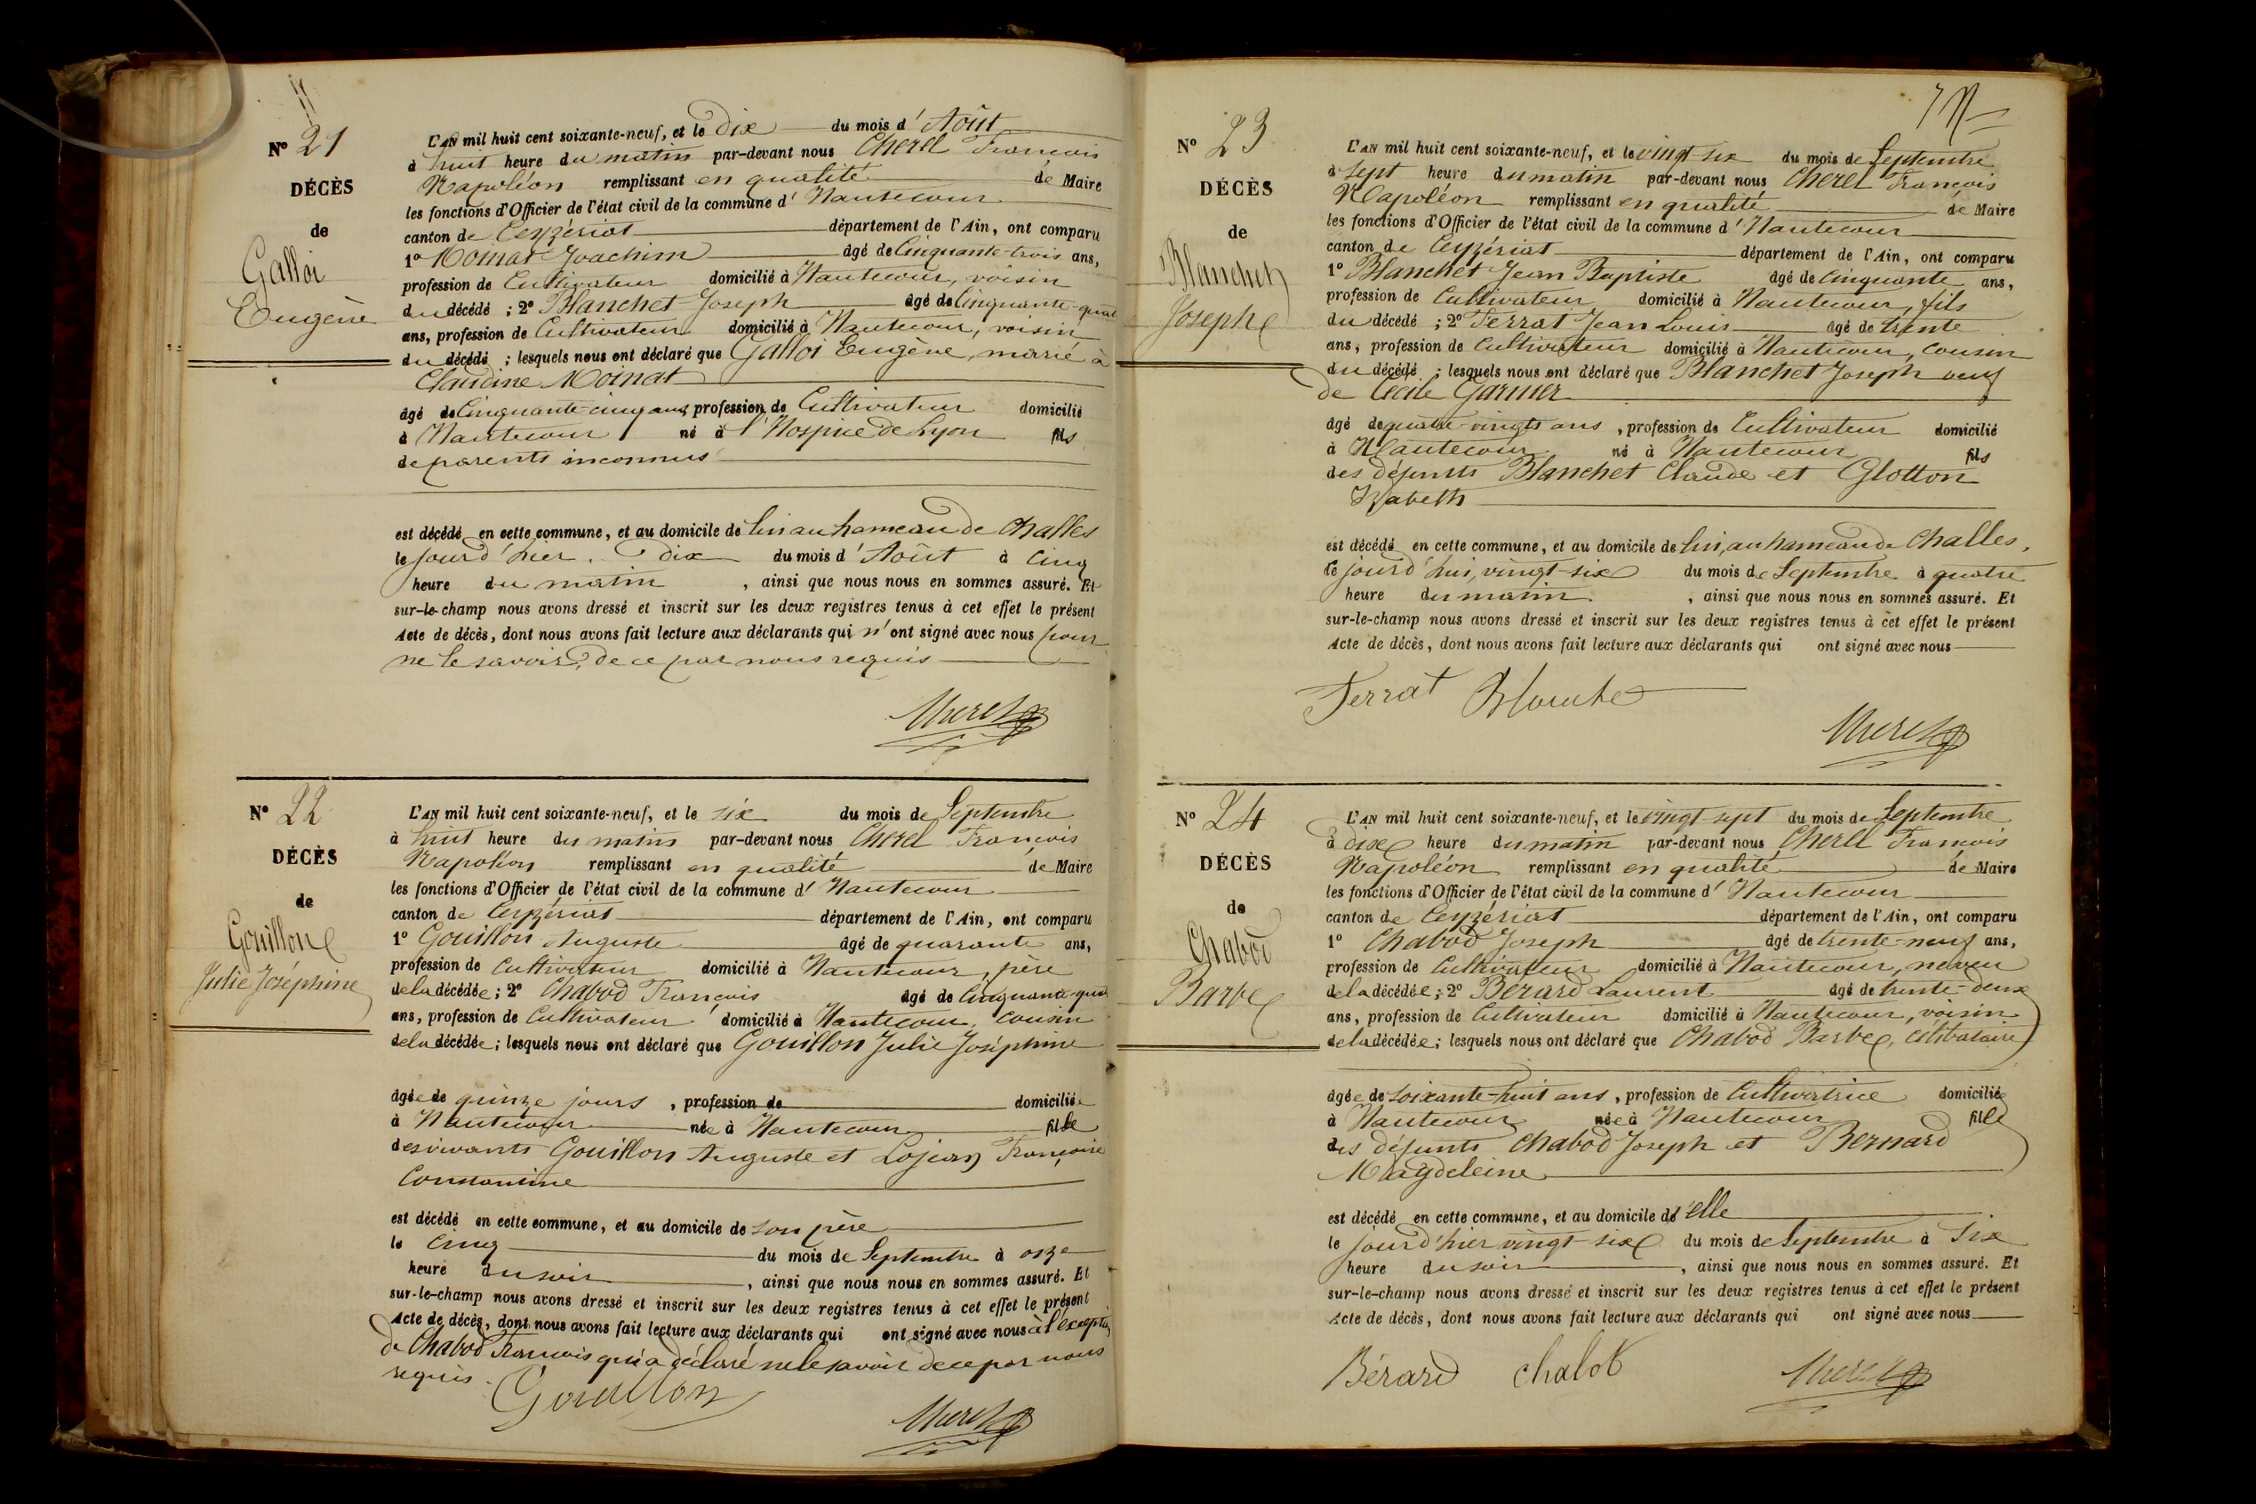 Nº 21
DÉCÈS
de
Galloi
Eugène
L'AN mil huit cent soixante-neuf, et le Dix du mois d' Août
à huit heure du matin par-devant nous Cherel François
Napoléon remplissant en qualité de Maire
les fonctions d'Officier de l'état civil de la commune d' Hautecour
canton de Ceyzériat département de l'Ain, ont comparu
1º Moinat Joachim âgé de Cinquante-trois ans,
profession de Cultivateur domicilié à Hautecour, voisin
du décédé ; 2º Blanchet Joseph âgé de Cinquante-quatre
ans, profession de Cultivateur domicilié à Hautecour, voisin
du décédé ; lesquels nous ont déclaré que Galloi Eugène, marié à
Claudine Moinat
âgé de Cinquante-cinq ans, profession de Cultivateur domicilié
à Hautecour né à l'Hospice de Lyon fils
de parents inconnus
est décédé en cette commune, et au domicile de lui au hameau de Challes
le jourd'hier dix du mois d' Août à cinq
heure du matin , ainsi que nous nous en sommes assuré. Et
sur-le-champ nous avons dressé et inscrit sur les deux registres tenus à cet effet le présent
Acte de décès, dont nous avons fait lecture aux déclarants qui n'ont signé avec nous pour
ne le savoir, de ce par nous requis
Cherel
Nº 22
DÉCÈS
de
Gouillon
Julie Joséphine
L'AN mil huit cent soixante-neuf, et le six du mois de Septembre
à huit heure du matin par-devant nous Cherel François
Napoléon remplissant en qualité de Maire
les fonctions d'Officier de l'état civil de la commune d' Hautecour
canton de Ceyzériat département de l'Ain, ont comparu
1º Gouillon Auguste âgé de quarante ans,
profession de Cultivateur domicilié à Hautecour, père
de la décédée ; 2º Chabod François âgé de Cinquante-quatre
ans, profession de Cultivateur domicilié à Hautecour, cousin
de la décédée ; lesquels nous ont déclaré que Gouillon Julie Joséphine
âgée de quinze jours , profession de domiciliée
à Hautecour née à Hautecour fille
des vivants Gouillon Auguste et Lojean Françoise
Constantine
est décédé en cette commune, et au domicile de son père
le cinq du mois de Septembre à onze
heure du soir , ainsi que nous nous en sommes assuré. Et
sur-le-champ nous avons dressé et inscrit sur les deux registres tenus à cet effet le présent
Acte de décès, dont nous avons fait lecture aux déclarants qui ont signé avec nous à l'exception
de Chabod François qui a déclaré ne le savoir de ce par nous
requis.
Gouillon
Cherel
Nº 23
DÉCÈS
de
Blanchet
Joseph
L'AN mil huit cent soixante-neuf, et le vingt-six du mois de Septembre
à sept heure du matin par-devant nous Cherel François
Napoléon remplissant en qualité de Maire
les fonctions d'Officier de l'état civil de la commune d' Hautecour
canton de Ceyzériat département de l'Ain, ont comparu
1º Blanchet Jean Baptiste âgé de Cinquante ans,
profession de Cultivateur domicilié à Hautecour, fils
du décédé ; 2º Ferrat Jean Louis âgé de trente
ans, profession de Cultivateur domicilié à Hautecour, cousin
du décédé ; lesquels nous ont déclaré que Blanchet Joseph veuf
de Cécile Garnier
âgé de quatre-vingts ans , profession de Cultivateur domicilié
à Hautecour né à Hautecour fils
des défunts Blanchet Claude et Glotton
Izabeth
est décédé en cette commune, et au domicile de lui, au hameau de Challes,
le jourd'hui, vingt-six du mois de Septembre à quatre
heure du matin. , ainsi que nous nous en sommes assuré. Et
sur-le-champ nous avons dressé et inscrit sur les deux registres tenus à cet effet le présent
Acte de décès, dont nous avons fait lecture aux déclarants qui ont signé avec nous
Ferrat Blanchet
Cherel
Nº 24
DÉCÈS
de
Chabod
Barbe
L'AN mil huit cent soixante-neuf, et le vingt-sept du mois de Septembre
à dix heure du matin par-devant nous Cherel François
Napoléon remplissant en qualité de Maire
les fonctions d'Officier de l'état civil de la commune d' Hautecour
canton de Ceyzériat département de l'Ain, ont comparu
1º Chabod Joseph âgé de trente-neuf ans,
profession de Cultivateur domicilié à Hautecour, neveu
de la décédée ; 2º Bérard Laurent âgé de trente-deux
ans, profession de Cultivateur domicilié à Hautecour, voisin
de la décédée ; lesquels nous ont déclaré que Chabod Barbe, célibataire
âgée de soixante-huit ans , profession de Cultivatrice domiciliée
à Hautecour née à Hautecour fille
des défunts Chabod Joseph et Bernard
Magdeleine
est décédé en cette commune, et au domicile d'elle
le jourd'hier vingt six du mois de Septembre à Six
heure du soir , ainsi que nous nous en sommes assuré. Et
sur-le-champ nous avons dressé et inscrit sur les deux registres tenus à cet effet le présent
Acte de décès, dont nous avons fait lecture aux déclarants qui ont signé avec nous
Bérard Chabod
Cherel